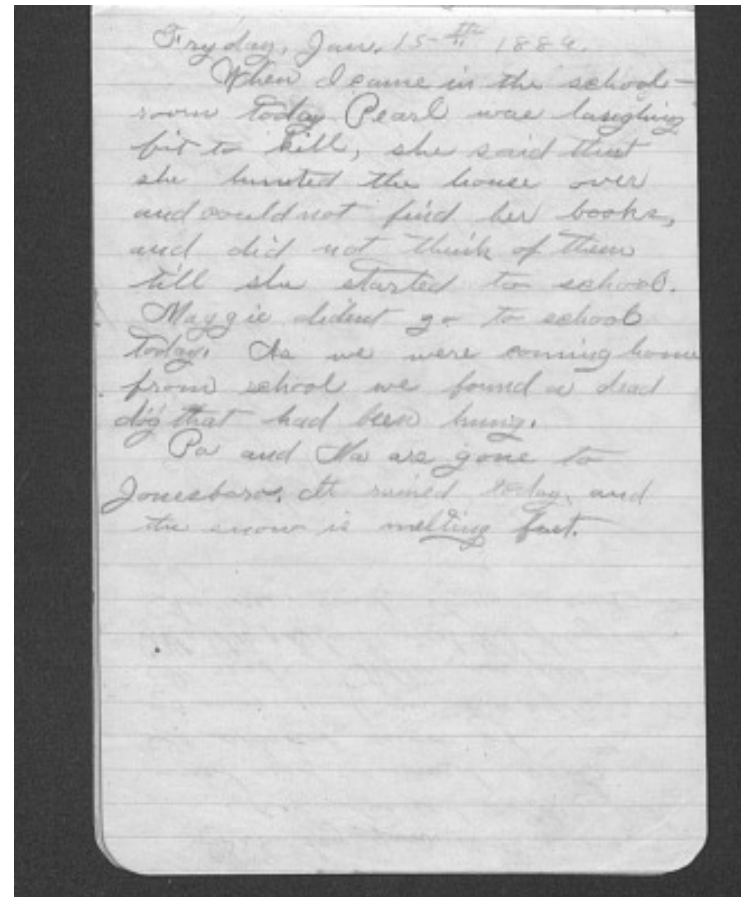 Fryday, Jan. 15th 1886.
When I came in the school-
room today Pearl was laughing
fit to kill, she said that
she hunted the house over
and could not find her books,
and did not think of them
till she started to school.
Maggie dident go to school
today. As we were coming home
from school we found a dead
dog that had been hung.
Pa and Ma are gone to
Jonesboro. It rained today, and
the snow is melting fast.